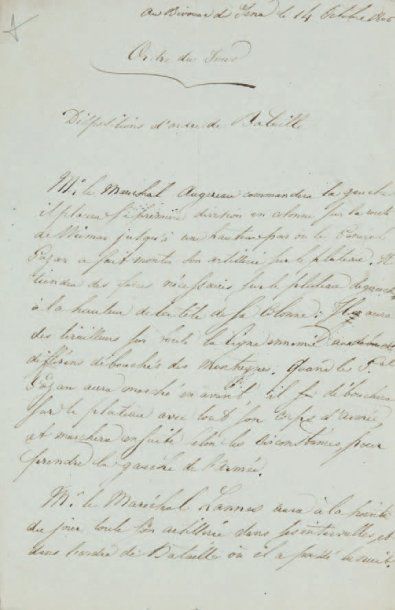 Au Bivouac de Jena le 14 Octobre 1806
Ordre du Jour
Dispositions d'ordre de Bataille
Mr. le Maréchal Augereau commandera la gauche
il placera sa première division en colonne sur la route
de Weimar jusqu'à une hauteur par où le Général
Gazan a fait monter son artillerie sur le plateau. Il
tiendra des forces nécessaires sur le plateau de gauche
à la hauteur de la tête de sa colonne. Il y aura
des tirailleurs sur toute la ligne ennemie aux
différens débouchés des montagnes. Quand le Gal
Gazan aura marché en avant, il fera déboucher
sur le plateau avec tout son corps d'armée
et marchera ensuite selon les circonstances pour
prendre la gauche de l'armée.
Mr. le Maréchal Lannes aura à la pointe
du jour toute son artillerie dans ses intervalles et
dans l'ordre de Bataille où il a passé la nuit.